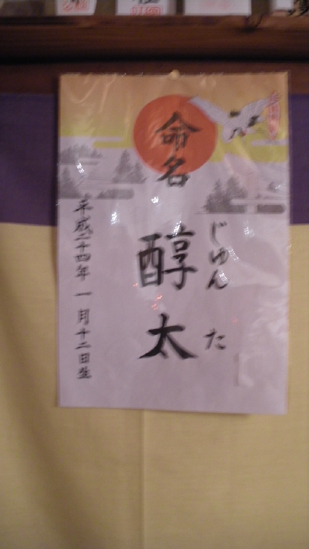 命名
じゅん た
醇太
平成二十四年 一月十二日生